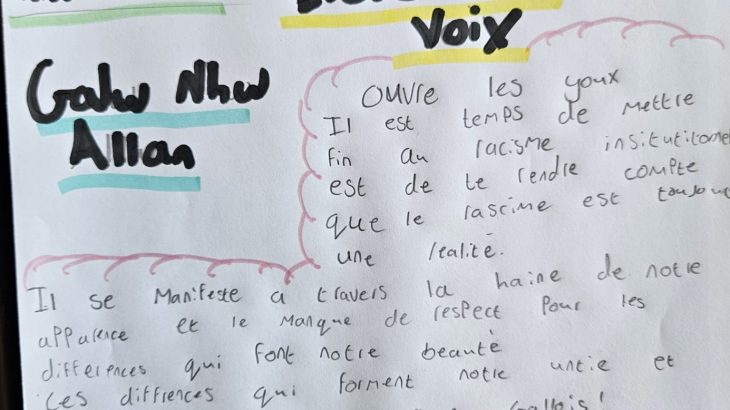 Voix
Galw Nhw
Allan
Ouvre les youx
Il est temps de mettre
fin au racisme
est de te rendre compte
que le rascime est
une réalité.
Il se manifeste a travers la haine de notre
apparence et le manque de respect pour les
differences qui font notre beauté
ces diffrences qui forment notre untie et